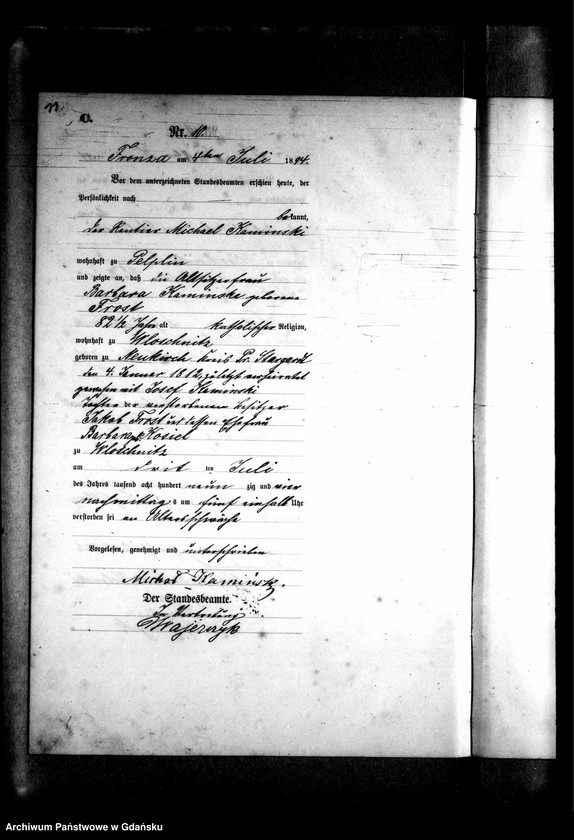 11.
C.
Nr. 10.
Fronza am 4ten Juli 1894.
Vor dem unterzeichneten Standesbeamten erschien heute, der
Persönlichkeit nach
bekannt,
der Rentier Michael Kaminski
wohnhaft zu Pelplin
und zeigte an, daß die Altsitzerfrau
Barbara Kaminske geborene
Frost
82 1/2 Jahre alt katholischer Religion,
wohnhaft zu Wloschnitz
geboren zu Neukirch Kreis Pr. Stargard
den 4. Januar 1812, zuletzt verheiratet
gewesen mit Josef Kaminski
Tochter der verstorbenen Besitzer
Jakob Frost und dessen Ehefrau
Barbara geb. Kosiel
zu Wloschnitz
am drit ten Juli
des Jahres tausend acht hundert neun zig und vier
nachmittag s um fünf einhalb Uhr
verstorben sei an Altersschwäche
Vorgelesen, genehmigt und unterschrieben
Michael Kaminski.
Der Standesbeamte.
In Vertretung
Archiwum Państwowe w Gdańsku